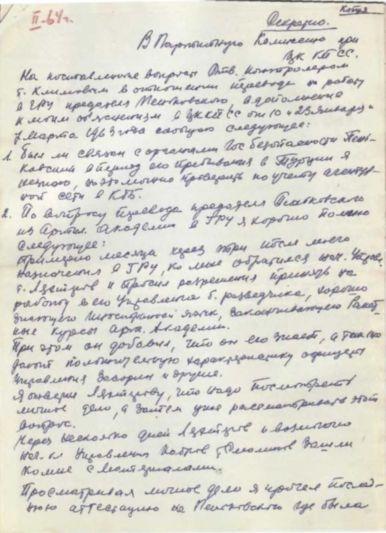 Копия
II-64г.
Секретно.
В Партийную Комиссию при
ЦК КПСС.
На поставленные вопросы Отв. контролером
т. Климовым в отношении перевода на работу
в ГРУ предателя Пеньковского, в дополнение
к моим объяснениям в ЦК КПСС от 10 и 25 января
7 марта 1963 года сообщаю следующее:
1. Был ли связан с органами Госбезопасности Пень-
ковский в период его пребывания в Турции я
не знаю, возможно проверить по учету агентур-
ной сети в КГБ.
2. По вопросу перевода предателя Пеньковского
из Артил. Академии в ГРУ я хорошо помню
следующее:
Примерно месяца через три после моего
назначения в ГРУ, ко мне обратился нач. Управ.
и просил разрешения принять на
работу в его Управление б. разведчика, хорошо
знающего язык, закончившего Ракет-
ные курсы арт. Академии.
При этом он добавил, что он его знает, а также
дают положительную характеристику офицеры
Управления и другие.
Я ответил, что надо посмотреть
личное дело, а затем уже рассматривать этот
вопрос.
Через несколько дней и
нач. Управления зашли
ко мне с материалами.
Просматривая личное дело я прочел послед-
нюю аттестацию на Пеньковского где была